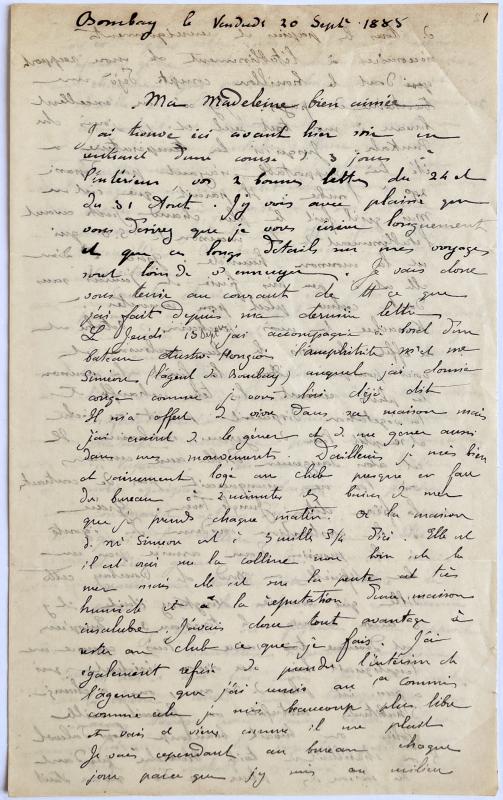 Bombay le Vendredi 20 Septe 1885
1
Ma Madeleine bien aimée
J'ai trouvé ici avant hier soir en
rentrant d'une course de 3 jours à
l'intérieur vos 2 bonnes lettres du 24 et
du 31 Aout. J'y vois avec plaisir que
vous désirez que je vous écrive longuement
et que ces longs détails sur mes voyages
sont loin de vous ennuyer. Je vais donc
vous tenir au courant de tt ce que
j'ai fait depuis ma dernière lettre
Le Jeudi 13 Septe j'ai accompagné à bord d'un
bateau Austro-Hongrois l'amphitrite Mr et Me
Simeon (l'agent de Bombay) auquel j'ai donné
congé comme je vous l'ai déjà dit
Il m'a offert de vivre dans sa maison mais
j'ai craint de le gêner et de me gêner aussi
dans mes mouvements. D'ailleurs je suis bien
et sainement logé au club presque en face
du bureau à 2 minutes des bains de mer
que je prends chaque matin. Or la maison
de Mr Simeon est à 3 mills 3/4 d'ici. Elle est
il est vrai sur la colline non loin de la
mer mais elle est sur la pente et très
humide et a la réputation d'une maison
insalubre. J'avais donc tout avantage à
rester au club ce que je fais. J'ai
également refusé de prendre l'intérim de
l'agence que j'ai remis au 1er commis
comme cela je suis beaucoup plus libre
et vais et viens comme il me plait
Je vais cependant au bureau chaque
jour parce que j'y suis au milieu